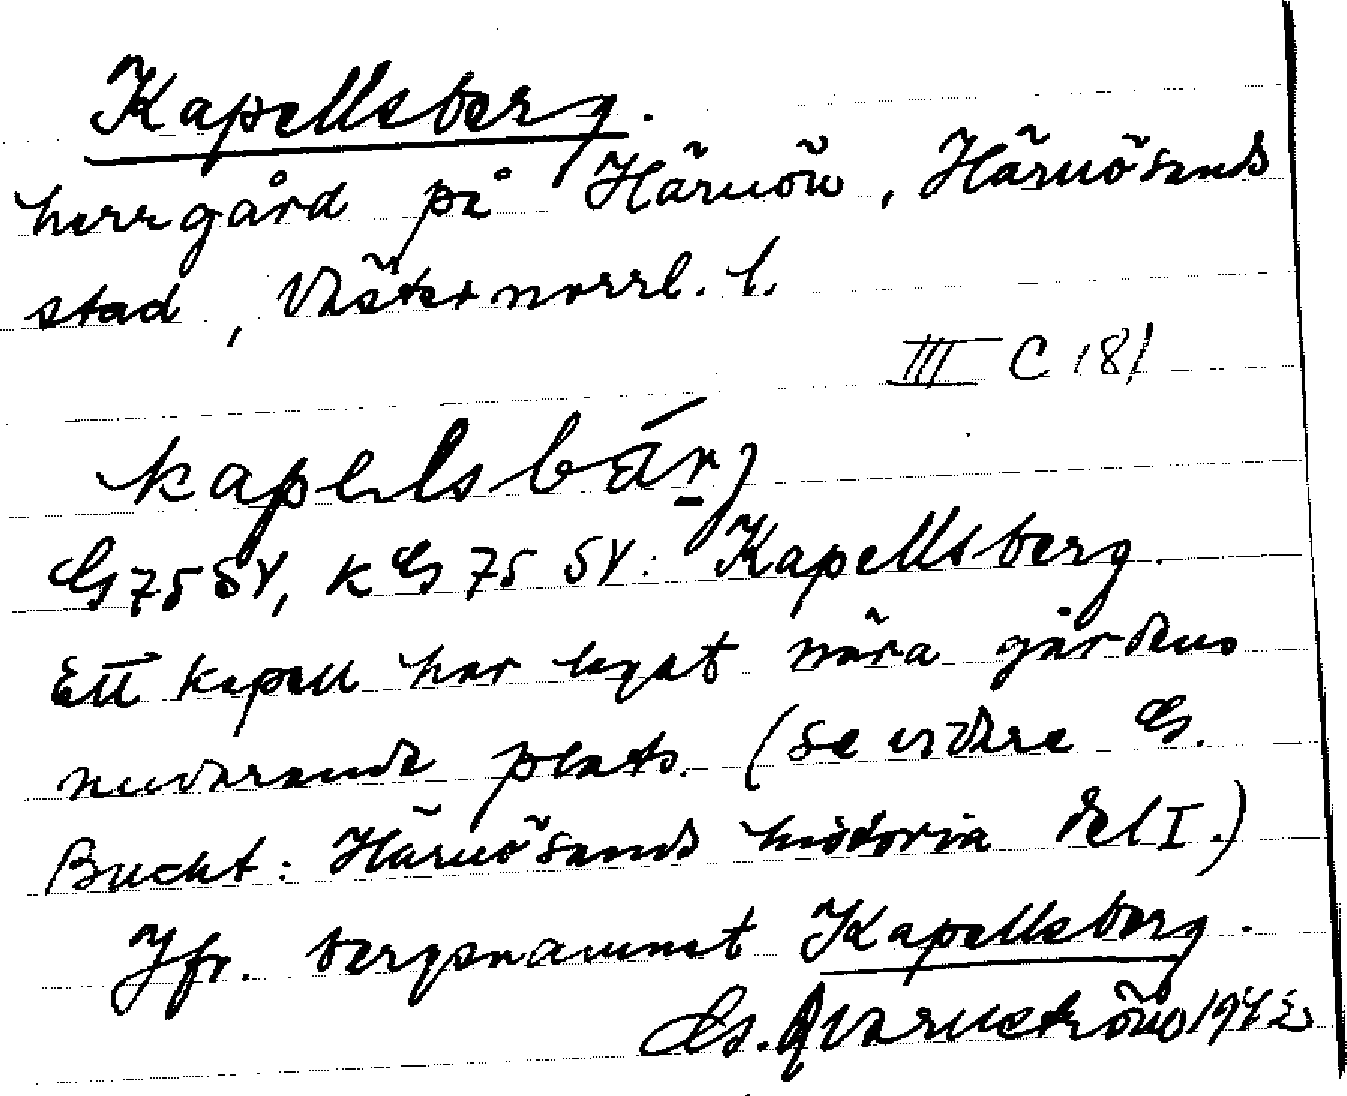 Kapellsberg.
herrgård på Härnön, Härnösands
stad, Västernorrl. l.
III C 181
kapelsbár)
GS 75 SV, K GS 75 SV: Kapellsberg.
Ett kapell har legat nära gårdens
nuvarande plats. (Se vidare G.
Bucht: Härnösands historia del I.)
Jfr. bergsnamnet Kapellsberg.
Gs. Qvarnström 1942